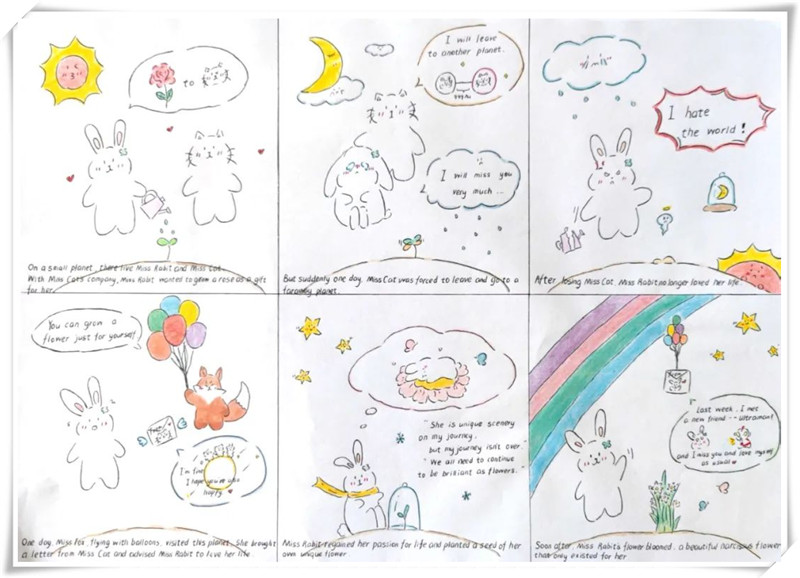 to
On a small planet, there live Miss Rabit and Miss Cat.
With Miss Cat's company, Miss Rabit wanted to grow a rose as a gift
for her.
I will leave
to another planet.
I will miss you
very much ...
But suddenly one day, Miss Cat was forced to leave and go to a
faraway planet.
I hate
the world!
After losing Miss Cat, Miss Rabit no longer loved her life.
You can grow a
flower just for yourself.
I'm fine
I hope you're also
happy
One day, Miss Fox, flying with balloons, visited this planet. She brought
a letter from Miss Cat and advised Miss Rabit to love her life.
"She is unique scenery
on my journey,
but my journey isn't over."
"We all need to continue
to be briliant as flowers."
Miss Rabit regained her passion for life and planted a seed of her
own unique flower.
Last week, I met
a new friend -- Ultraman!
and I miss you and love myself
as usual
Soon after, Miss Rabit's flower bloomed, a beautiful narcissus flower
that only existed for her